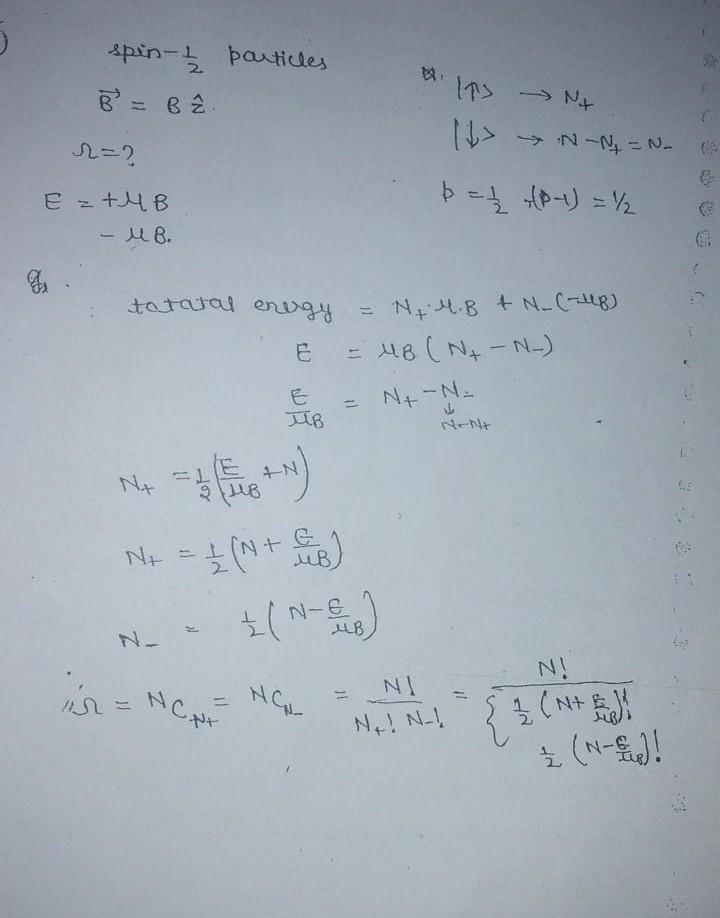 spin-1/2 particles
B⃗ = B ẑ.
Ω=?
E = +μB
- μB.
|↑> → N₊
|↓> → N-N₊ = N₋
p = 1/2, (p-1) = 1/2
totatal energy = N₊·μ.B + N₋(-μB)
E = μB (N₊ - N₋)
E/μB = N₊ - N₋
↓
N-N₊
N₊ = 1/2 (E/μB + N)
N₊ = 1/2 (N + E/μB)
N₋ = 1/2 (N - E/μB)
Ω = NC_N₊ = NC_N₋ = N!/(N₊! N₋!) = N!/{1/2 (N + E/μB)!
1/2 (N - E/μB)!